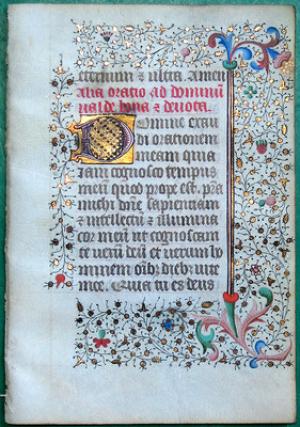 eternum et ultra. Amen
Alia oratio ad dominum
valde bona et devota.
Domine exau
di orationem
meam quia
iam cognosco tempus
meum quod prope est. pra
michi dne sapientiam
et intellectu et illumina
cor meum ut cognoscam
te verum deum et verum lu
minem oib dieb vite
mee. Quia tu es deus